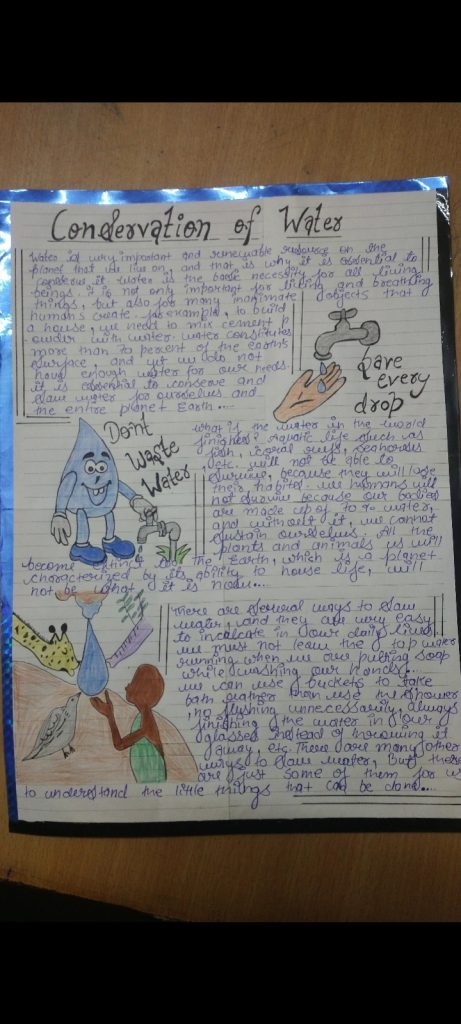 Conservation of Water
Water is very important and renewable resource on the
planet that we live on, and that is why it is essential to
conserve it. Water is the basic necessity for all living
beings. it is not only important for living and breathing
things, but also for many inanimate objects that
humans create. for example, to build
a house, we need to mix cement p
owder with water. water constitutes
more than 70 percent of the earth's
surface, and yet we do not
have enough water for our needs.
it is essential to conserve and
save water for ourselves and
the entire planet Earth....
Save
every
drop
Don't
Waste
Water
What if the water in the world
finishes? Aquatic life such as
fish, coral reefs, seahorses
, etc. will not be able to
survive, because they will lose
their habitat. we humans will
not survive because our bodies
are made up of 70 % water,
and without it, we cannot
sustain ourselves. All the
plants and animals us will
become extinct and the Earth, which is a planet
characterized by its ability to house life, will
not be what it is now...
There are several ways to save
water, and they are very easy
to inculcate in our daily lives.
we must not leave the tap water
running when we are putting soap
while washing our hands.
we can use buckets to take
bath rather than use the shower
, no flushing unnecessarily, always
finishing the water in our
glasses instead of throwing it
away, etc. There are many other
ways to save water, But these
are just some of them for us
to understand the little things that can be done....